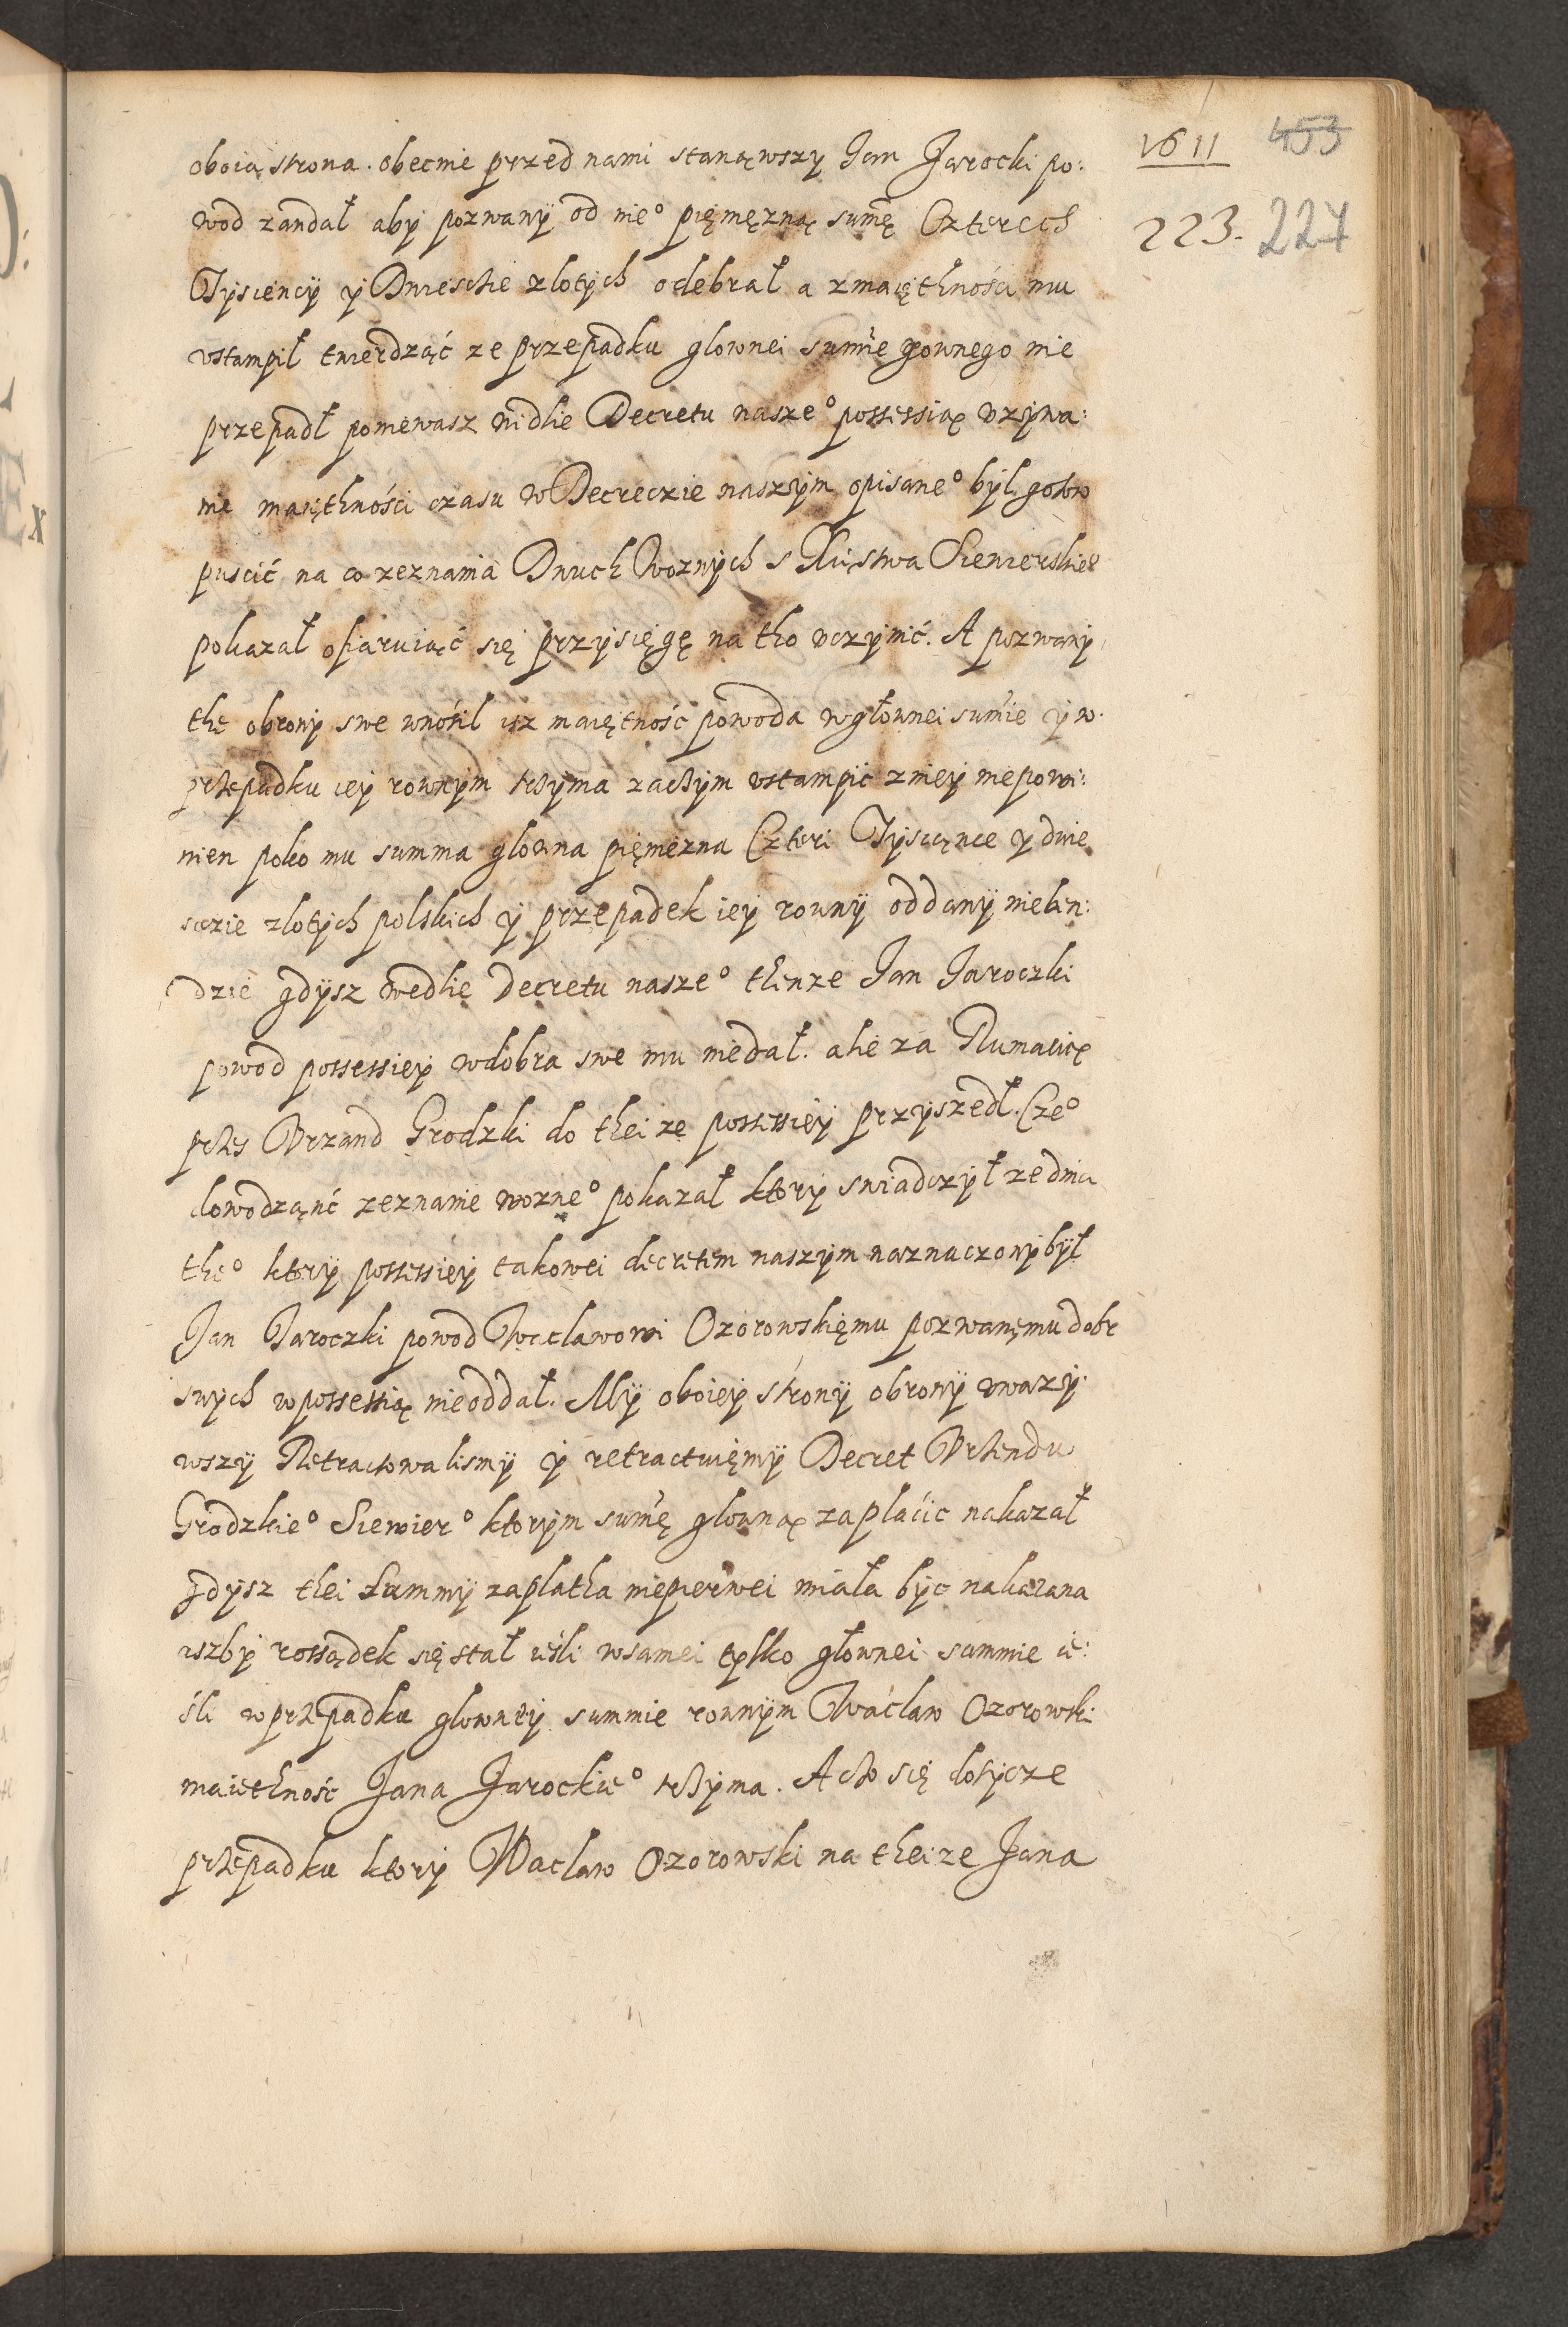 1611 453
223. 227
oboią strona. obecnie przed nami stanąwszy Jan Jarocki po:
wod zandał aby pozwanÿ od nie° pięmęzną sumę Czterech
Tÿsiencÿ ÿ Dwieschie zlotÿch odebrał a zmaięthności mu
vstampił twierdząć ze przepadku glownei sumie rownego nie
przepadł poniewasz widlie Decretu nasze° possessią vzÿwa:
nia maięthności czasu w Decreczie naszÿm opisane° bÿl gotow
puscić na co zeznania Dwuch Woznÿch s Xięstwa Siewierskie°
pokazał ofiaruiąć się przÿsięgę na tho vczÿnić. A pozwanÿ
the obronÿ swe wnosil isz maiętność powoda wgłownei sumie ÿ w
przepadku ieÿ rownÿm trzÿma zaczÿm vstampić znieÿ niepowi:
nien poko mu summa glowna pięniezna Czteri Tÿsiącze ÿ dwie
sczie zlotÿch polskich ÿ przepadek ieÿ rownÿ oddanÿ nieben:
dzie gdÿsz wedlie Decretu nasze° thenze Jan Jaroczki
powod possessieÿ wdobra swe mu niedał. alie za Rumacią
przes Vrzand Grodzki do thei ze possessieÿ przÿszedł. Cze°
dowodząnć zeznanie wozne° pokazał ktorÿ swiadczÿł ze dnia
the° ktorÿ possessieÿ takowei decretem naszÿm naznaczonÿ bÿł
Jan Jaroczki powod Wacławowi Ozorowskięmu pozwanęmu dobr
swÿch wpossessią nieoddał. Mÿ oboieÿ stronÿ obronÿ vwazÿ
wszÿ Retractowalismÿ ÿ retractuięmÿ Decret Vrzendu
Grodzkie° Siewier° ktorÿm sumę glowną zaplacic nakazał
gdÿsz thei summÿ zaplatha niepierwei miała bÿc nakazana
iszbÿ rossądek się stał iesli wsamei tÿlko głownei summie ie:
śli wprzepadku glowneÿ summie rownÿm Wacław Ozorowski
maiethność Jana Jarockie° trzÿma. A cto się dotÿcze
przepadku ktorÿ Wacław Ozorowski na theize Jana